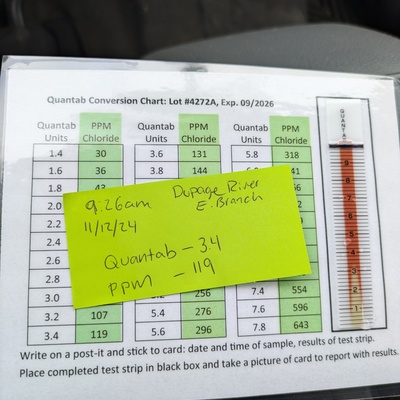 Quantab Conversion Chart: Lot #4272A, Exp. 09/2026
Quantab Units PPM Chloride Quantab Units PPM Chloride Quantab Units PPM Chloride
1.4 30 3.6 131 5.8 318
1.6 36 3.8 144 41
1.8
2.0
2.2
2.4
2.6
2.8
3.0 256 7.4 554
3.2 107 5.4 276 7.6 596
3.4 119 5.6 296 7.8 643
9:26am Dupage River
11/12/24 E. Branch
Quantab - 3.4
ppm - 119
QUANTAB
9
8
7
6
5
4
3
2
1
Write on a post-it and stick to card: date and time of sample, results of test strip.
Place completed test strip in black box and take a picture of card to report with results.